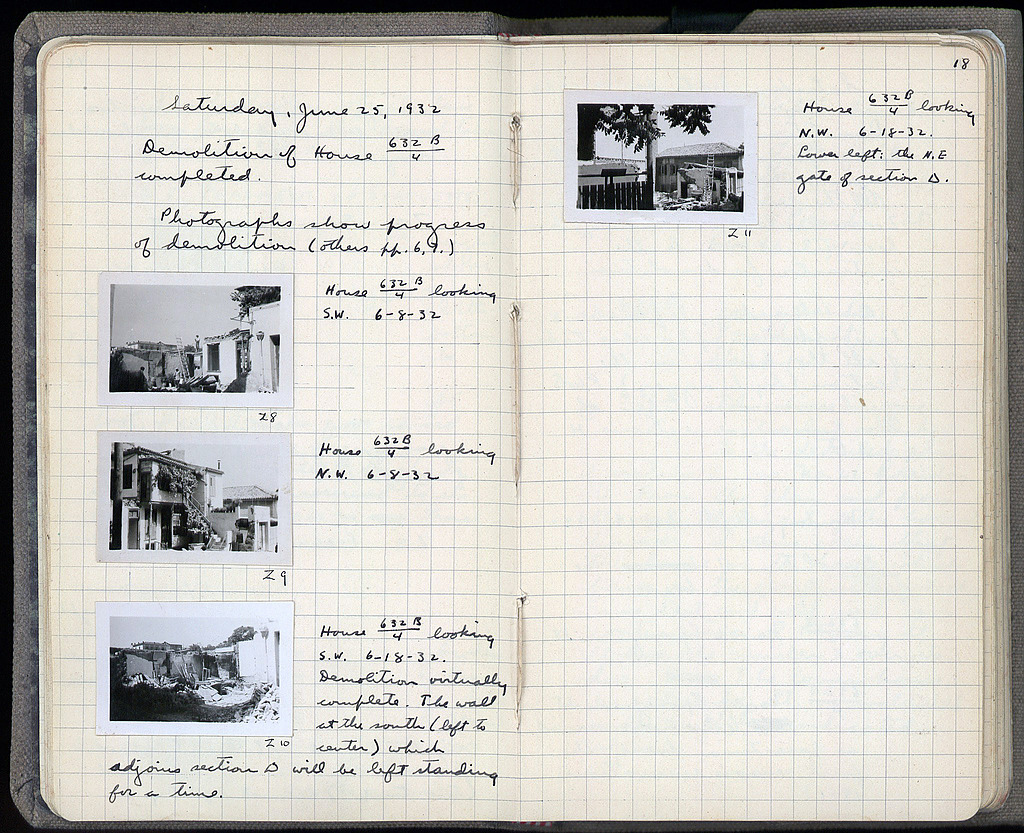 Saturday, June 25, 1932
Demolition of House 632 B/4
completed.
Photographs show progress
of demolition (others pp. 6, 9.)
House 632 B/4 looking
S.W. 6-8-32
Z 8
House 632 B/4 looking
N.W. 6-8-32
Z 9
House 632 B/4 looking
S.W. 6-18-32.
Demolition virtually
complete. The wall
at the south (left to
center) which
Z 10
adjoins section Δ will be left standing
for a time.
18
House 632 B/4 looking
N.W. 6-18-32.
Lower left: the N.E
gate of section Δ.
Z 11